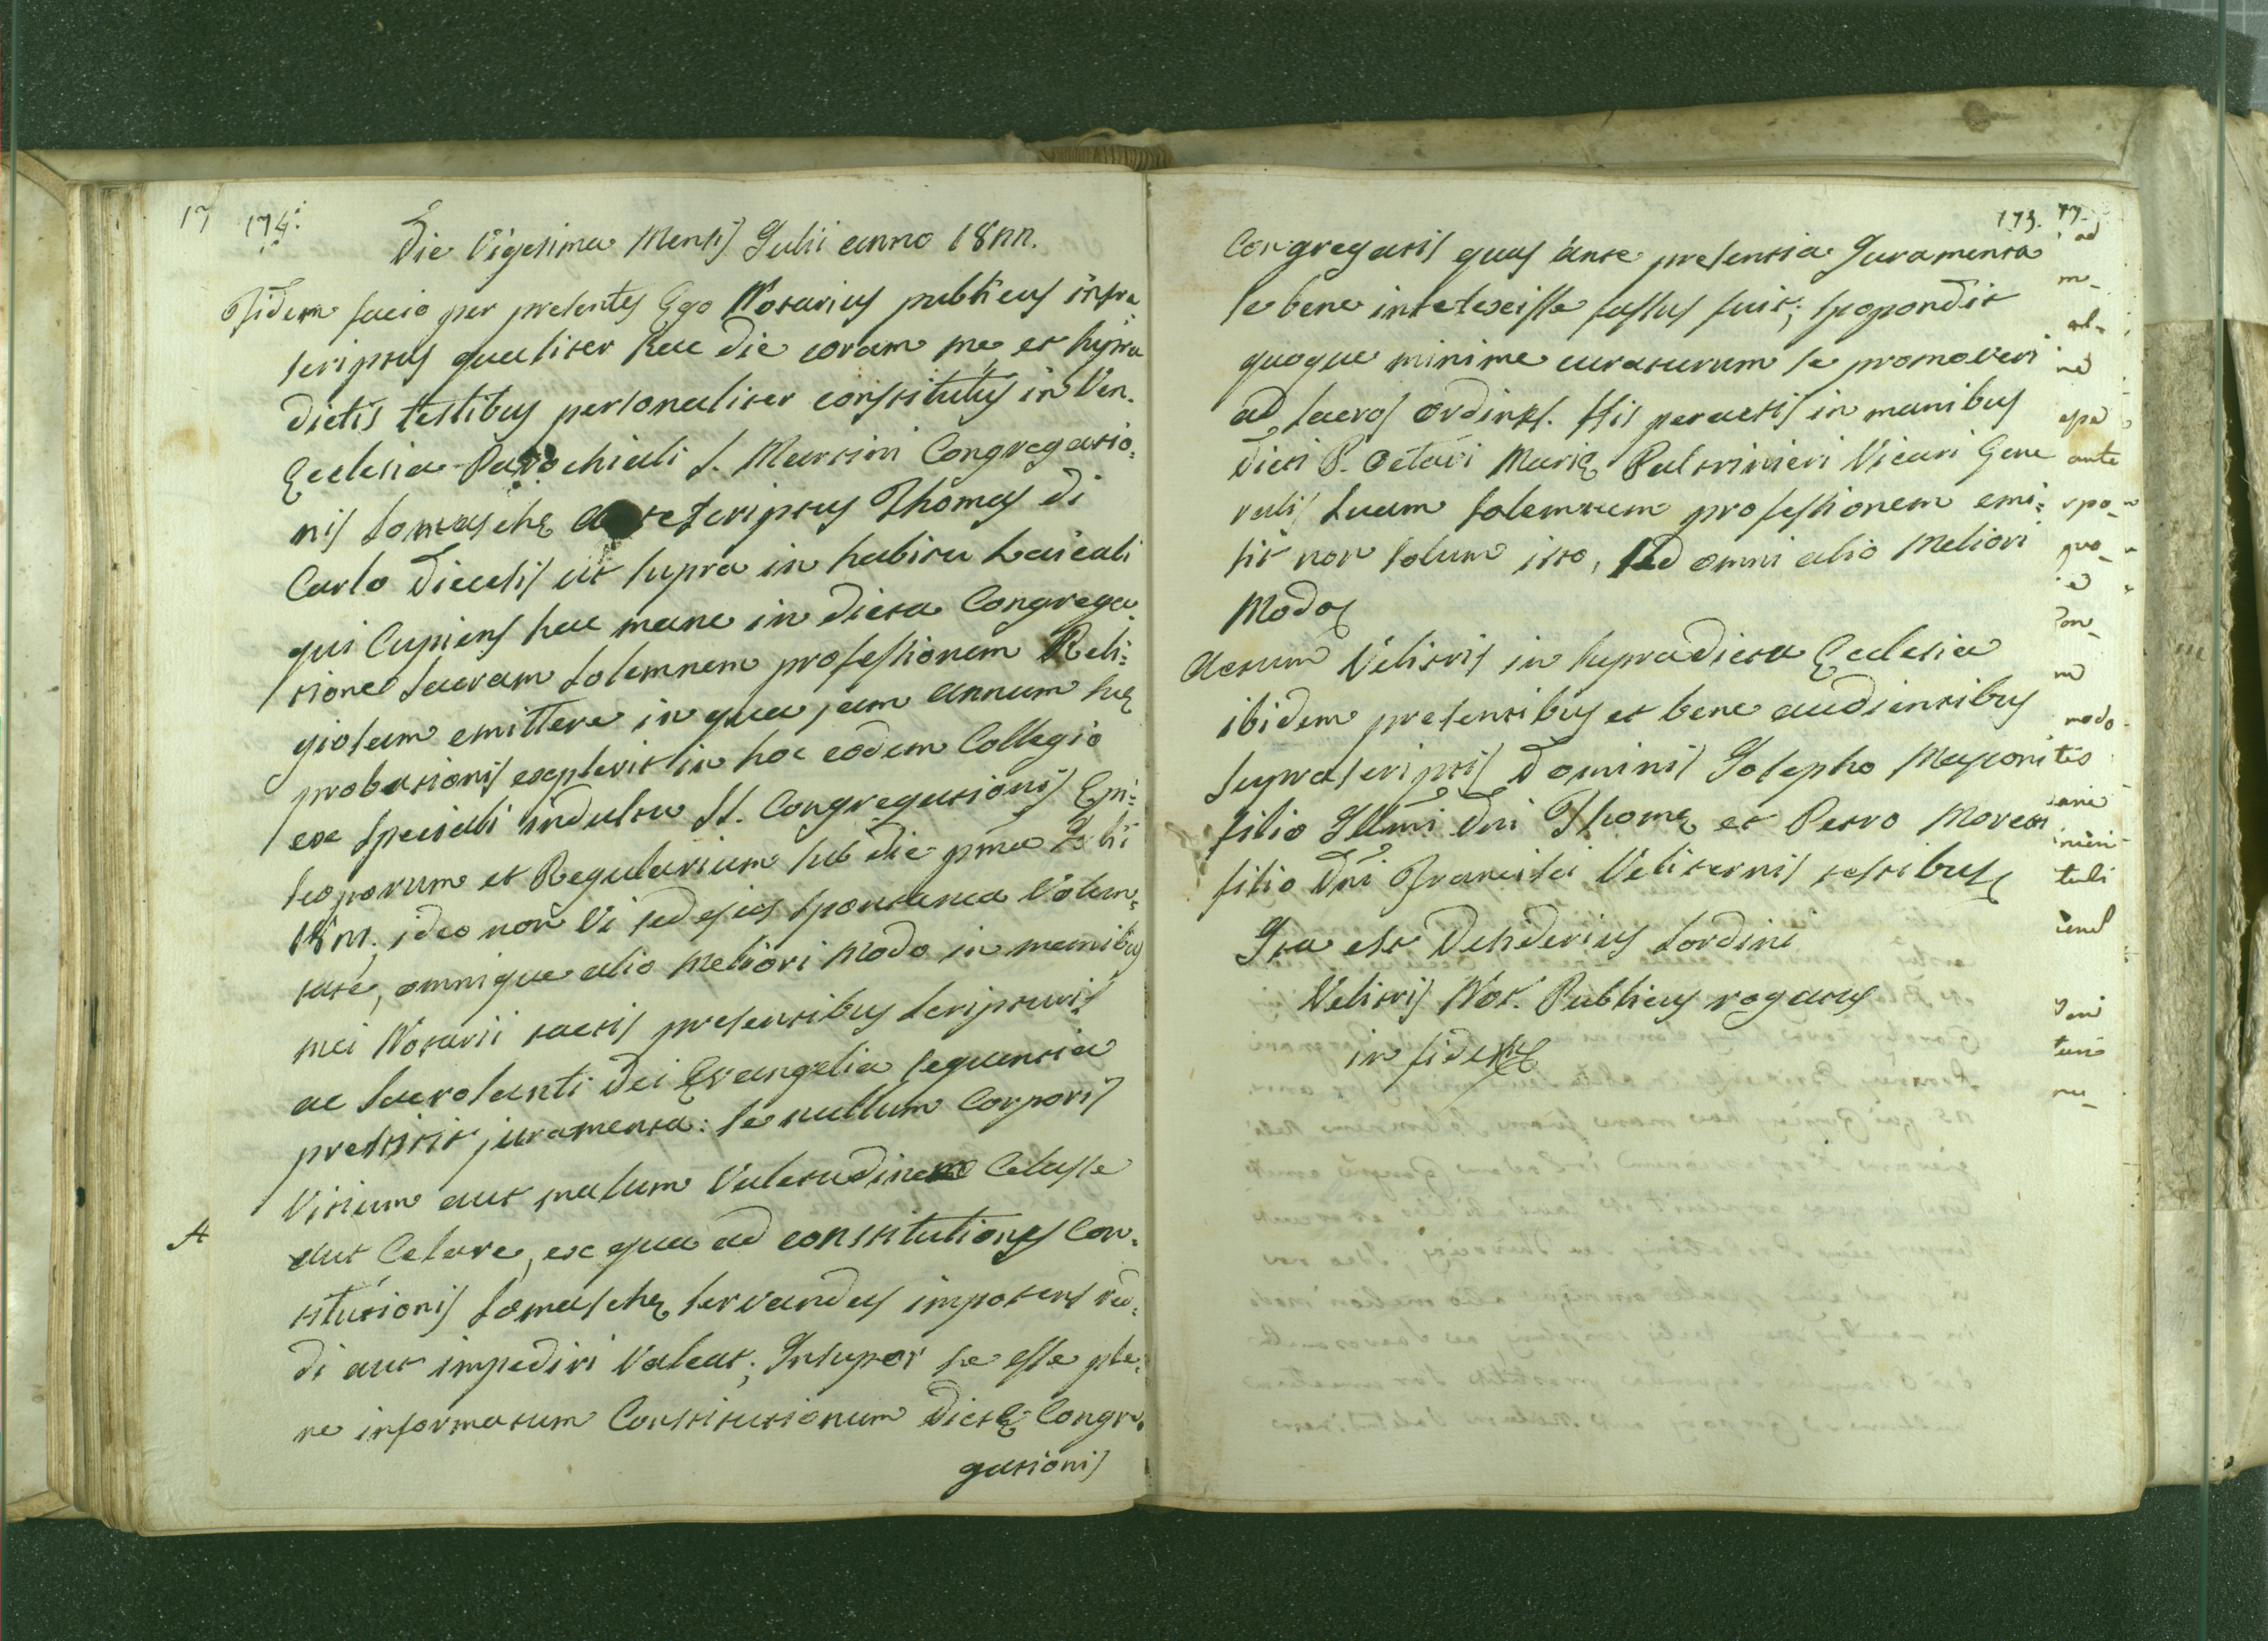 174.
Die Vigesima Mensis Julii anno 1822.
Fidem facio per presentes Ego Notarius publicus infra
scriptus qualiter hac die coram me, et supra
dictis testibus personaliter constitutus in Ven.
Ecclesia Parochiali S. Martini Congregatio=
nis Somaschę Thomas di
Carlo Diecesis ut supra in habitu Laicali
qui Cupiens hac mane in dicta Congrega
tione sacram solemnem professionem Reli=
giosam emittere in qua jam annum suę
probationis explevit in hoc eodem Collegio
ex speciali indultu S. Congregationis Epi=
scoporum et Regularium sub die pma Julii
ideo non Vi sed ejus spontanea Volun=
tate, omnique alio Meliori Modo in manibus
mei Notarii tactis presentibus scripturis
ac Sacrosanti Dei Evangelia sequentia
prestitit juramenta: se nullum Corporis
Vitium aut malum Valetudinem Celasse
aut Celare, ex qua ad constitutiones Con=
stitutionis Somaschę servandas impotens red=
di aut impediri Valeat; Insuper se esse ple=
ne informatum Constitutionum Dictę Congre=
gationis
A
173.
Congregatis quas ante presentia Juramenta
se bene intelexisse fassus fuit; spopondit
quoque minime curaturum se promoveri
ad sacros Ordines. His peractis in manibus
Dicti P. Octavi Marię Paltrinieri Vicari Gene
ralis suam solemnem professionem emi=
sit non solum isto, sed omni alio Meliori
Modo
Actum Velitris in supradicta Ecclesia
ibidem presentibus et bene audientibus
suprascriptis Dominis Josepho
filio Illmi Dni Thomę et Petro
filio Dni Francisci Veliternis testibus
Ita est Desiderius Sordini
Velitris Not. Publicus rogatus
in fidem
ante
modo